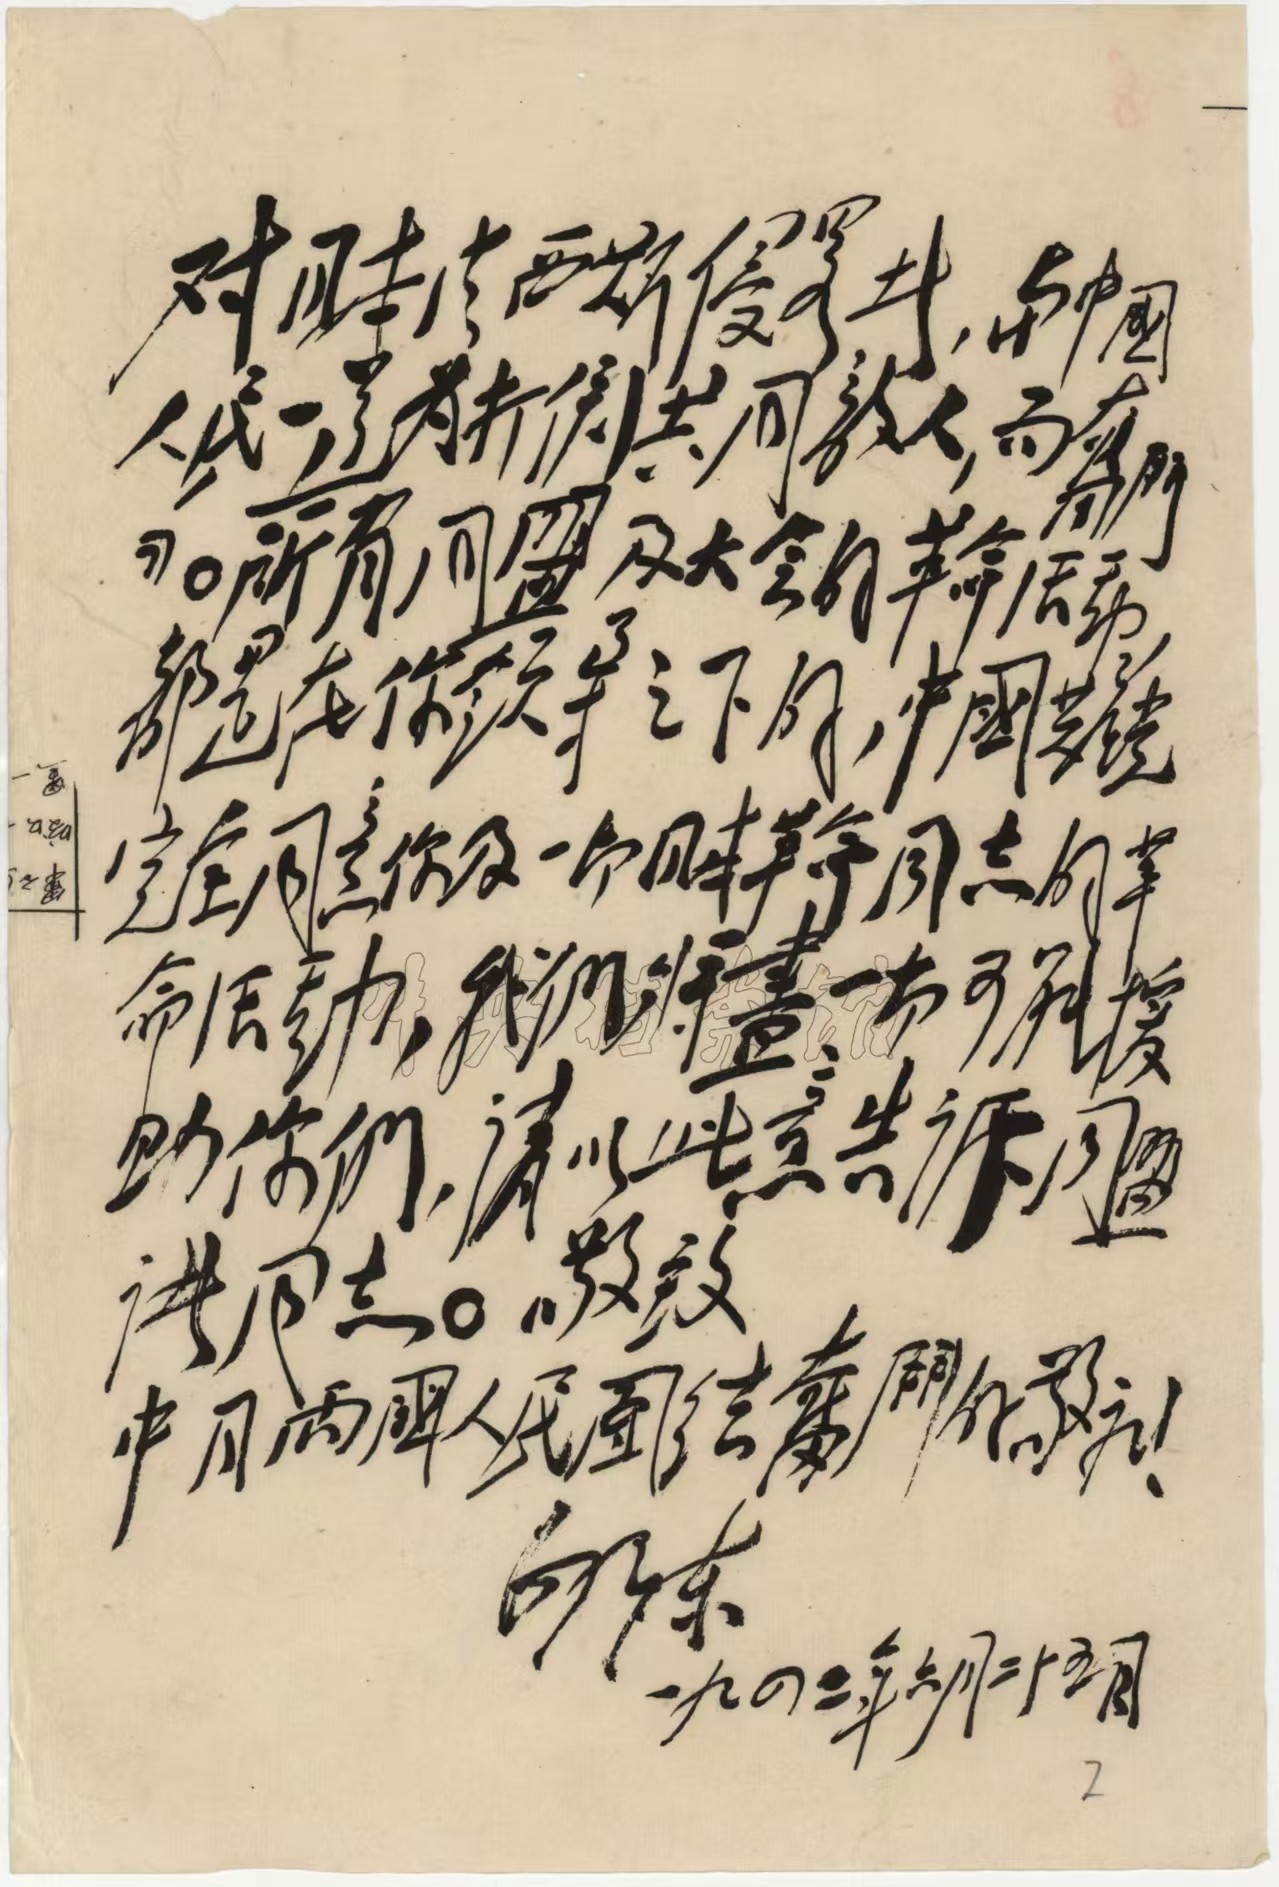 对日本法西斯侵略者,与中国
人民一道为打倒共同敌人,而奋鬥
的。所有同盟及大会的革命活动,
都是在你领导之下的,中國共党
完全同意你及一切日本革命同志的革
命活动,我们将尽一切可能援
助你们,请以此意告诉同盟
诸同志。敬致
中日两国人民团结奋鬥的敬礼!
泽东
一九四二年六月二十五日
2